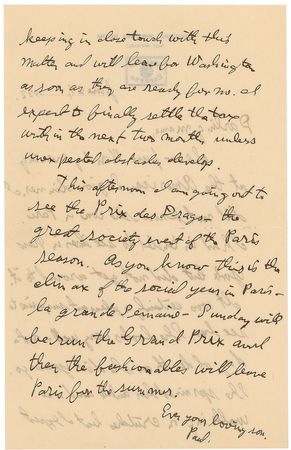 keeping in close touch with this
matter and will leave for Washington
as soon as they are ready for me. I
expect to finally settle the tax
within the next two months unless
unexpected obstacles develop.
This afternoon I am going out to
see the Prix des Drags – the
great society event of the Paris
season. As you know this is the
climax of the social year in Paris –
la grande Semaine – Sunday will
be run the Grand Prix and
then the fashionables will leave
Paris for the summer.
Ever your loving son,
Paul.